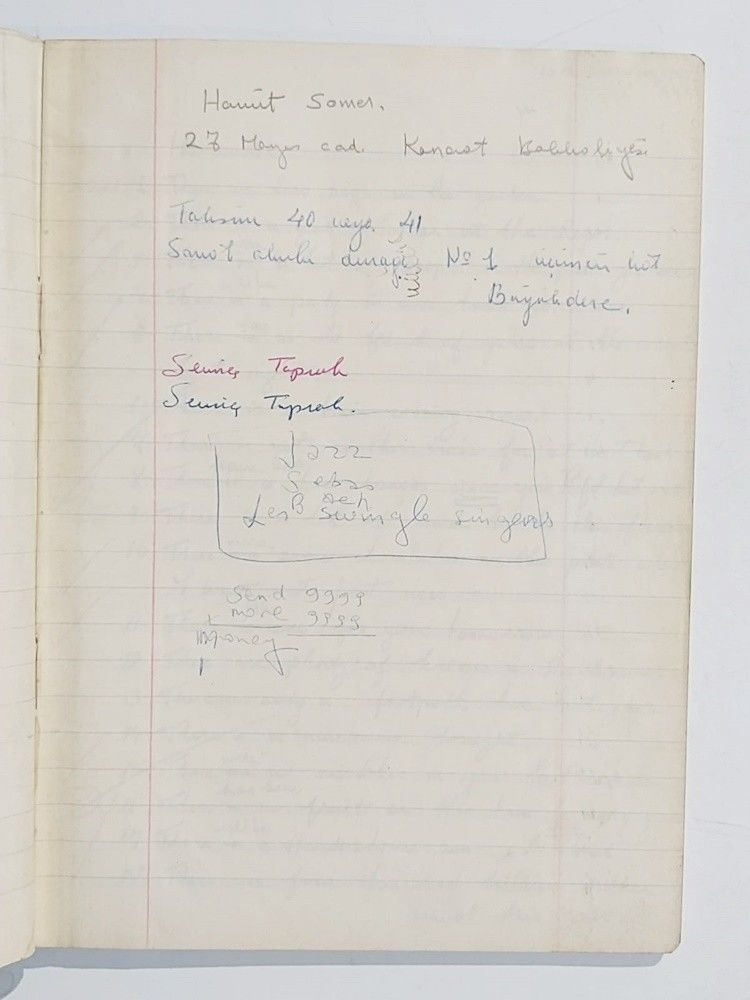 Hamit Somer.
27 Mayıs cad. Kanaat Bakkaliyesi
Taksim 40 veya 41
Sanat okulu durağı No 1 üçüncü kat
Büyükdere.
Sevinç Toprak
Sevinç Toprak.
Jazz
Sebas
Bach
Les swingle singers
send 9999
+ more 9999
money
1